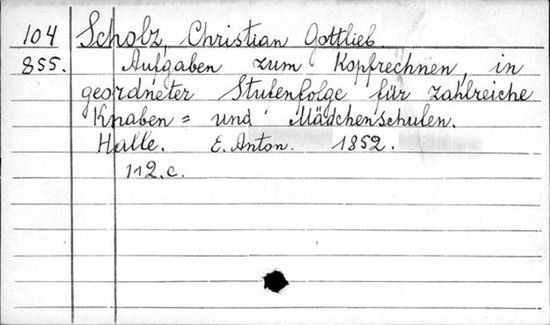 104 Scholz, Christian Gottlieb.
855. Aufgaben zum Kopfrechnen, in
geordneter Stufenfolge für zahlreiche
Knaben = und Mädchenschulen.
Halle. E. Anton. 1852.
112.c.